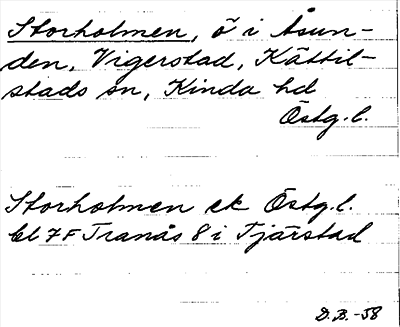 Storholmen, ö i Åsun-
den, Vigerstad, Kättil-
stads sn, Kinda hd
Östg. l.
Storholmen ek Östg. l.
bl 7F Tranås 8 i Tjärstad
D.B.-58